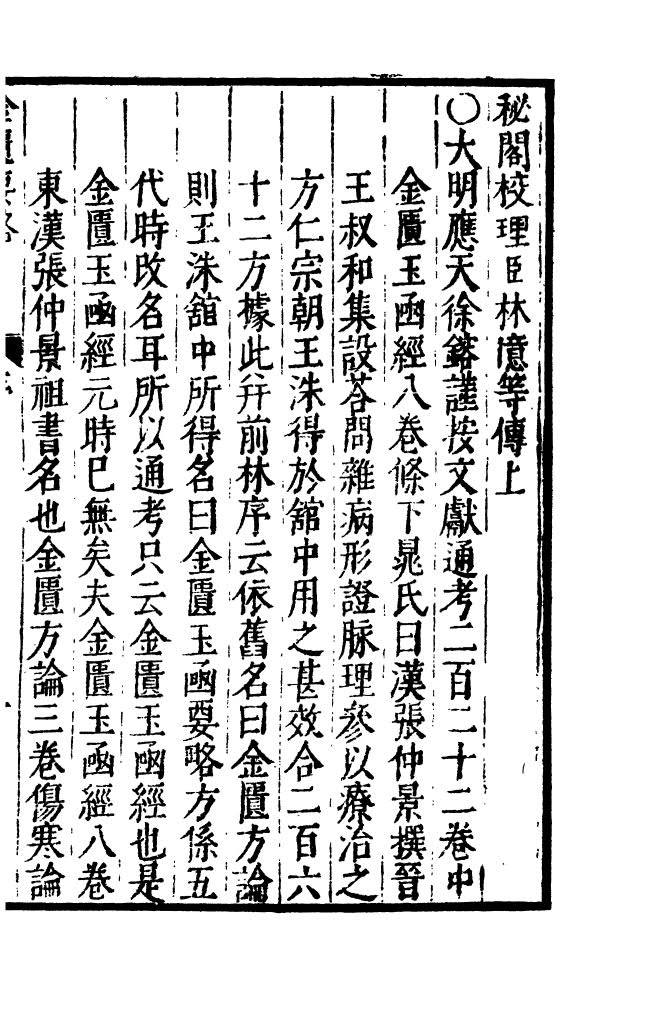 秘閣校理臣林億等傳上
○大明應天徐鎔謹按文獻通考二百二十二卷中
金匱玉函經八卷條下晁氏曰漢張仲景撰晉
王叔和集設荅問雜病形證脉理參以療治之
方仁宗朝王洙得於舘中用之甚效合二百六
十二方據此并前林序云依舊名曰金匱方論
則王洙舘中所得名曰金匱玉函要略方係五
代時改名耳所以通考只云金匱玉函經也是
金匱玉函經元時已無矣夫金匱玉函經八卷
東漢張仲景祖書名也金匱方論三卷傷寒論